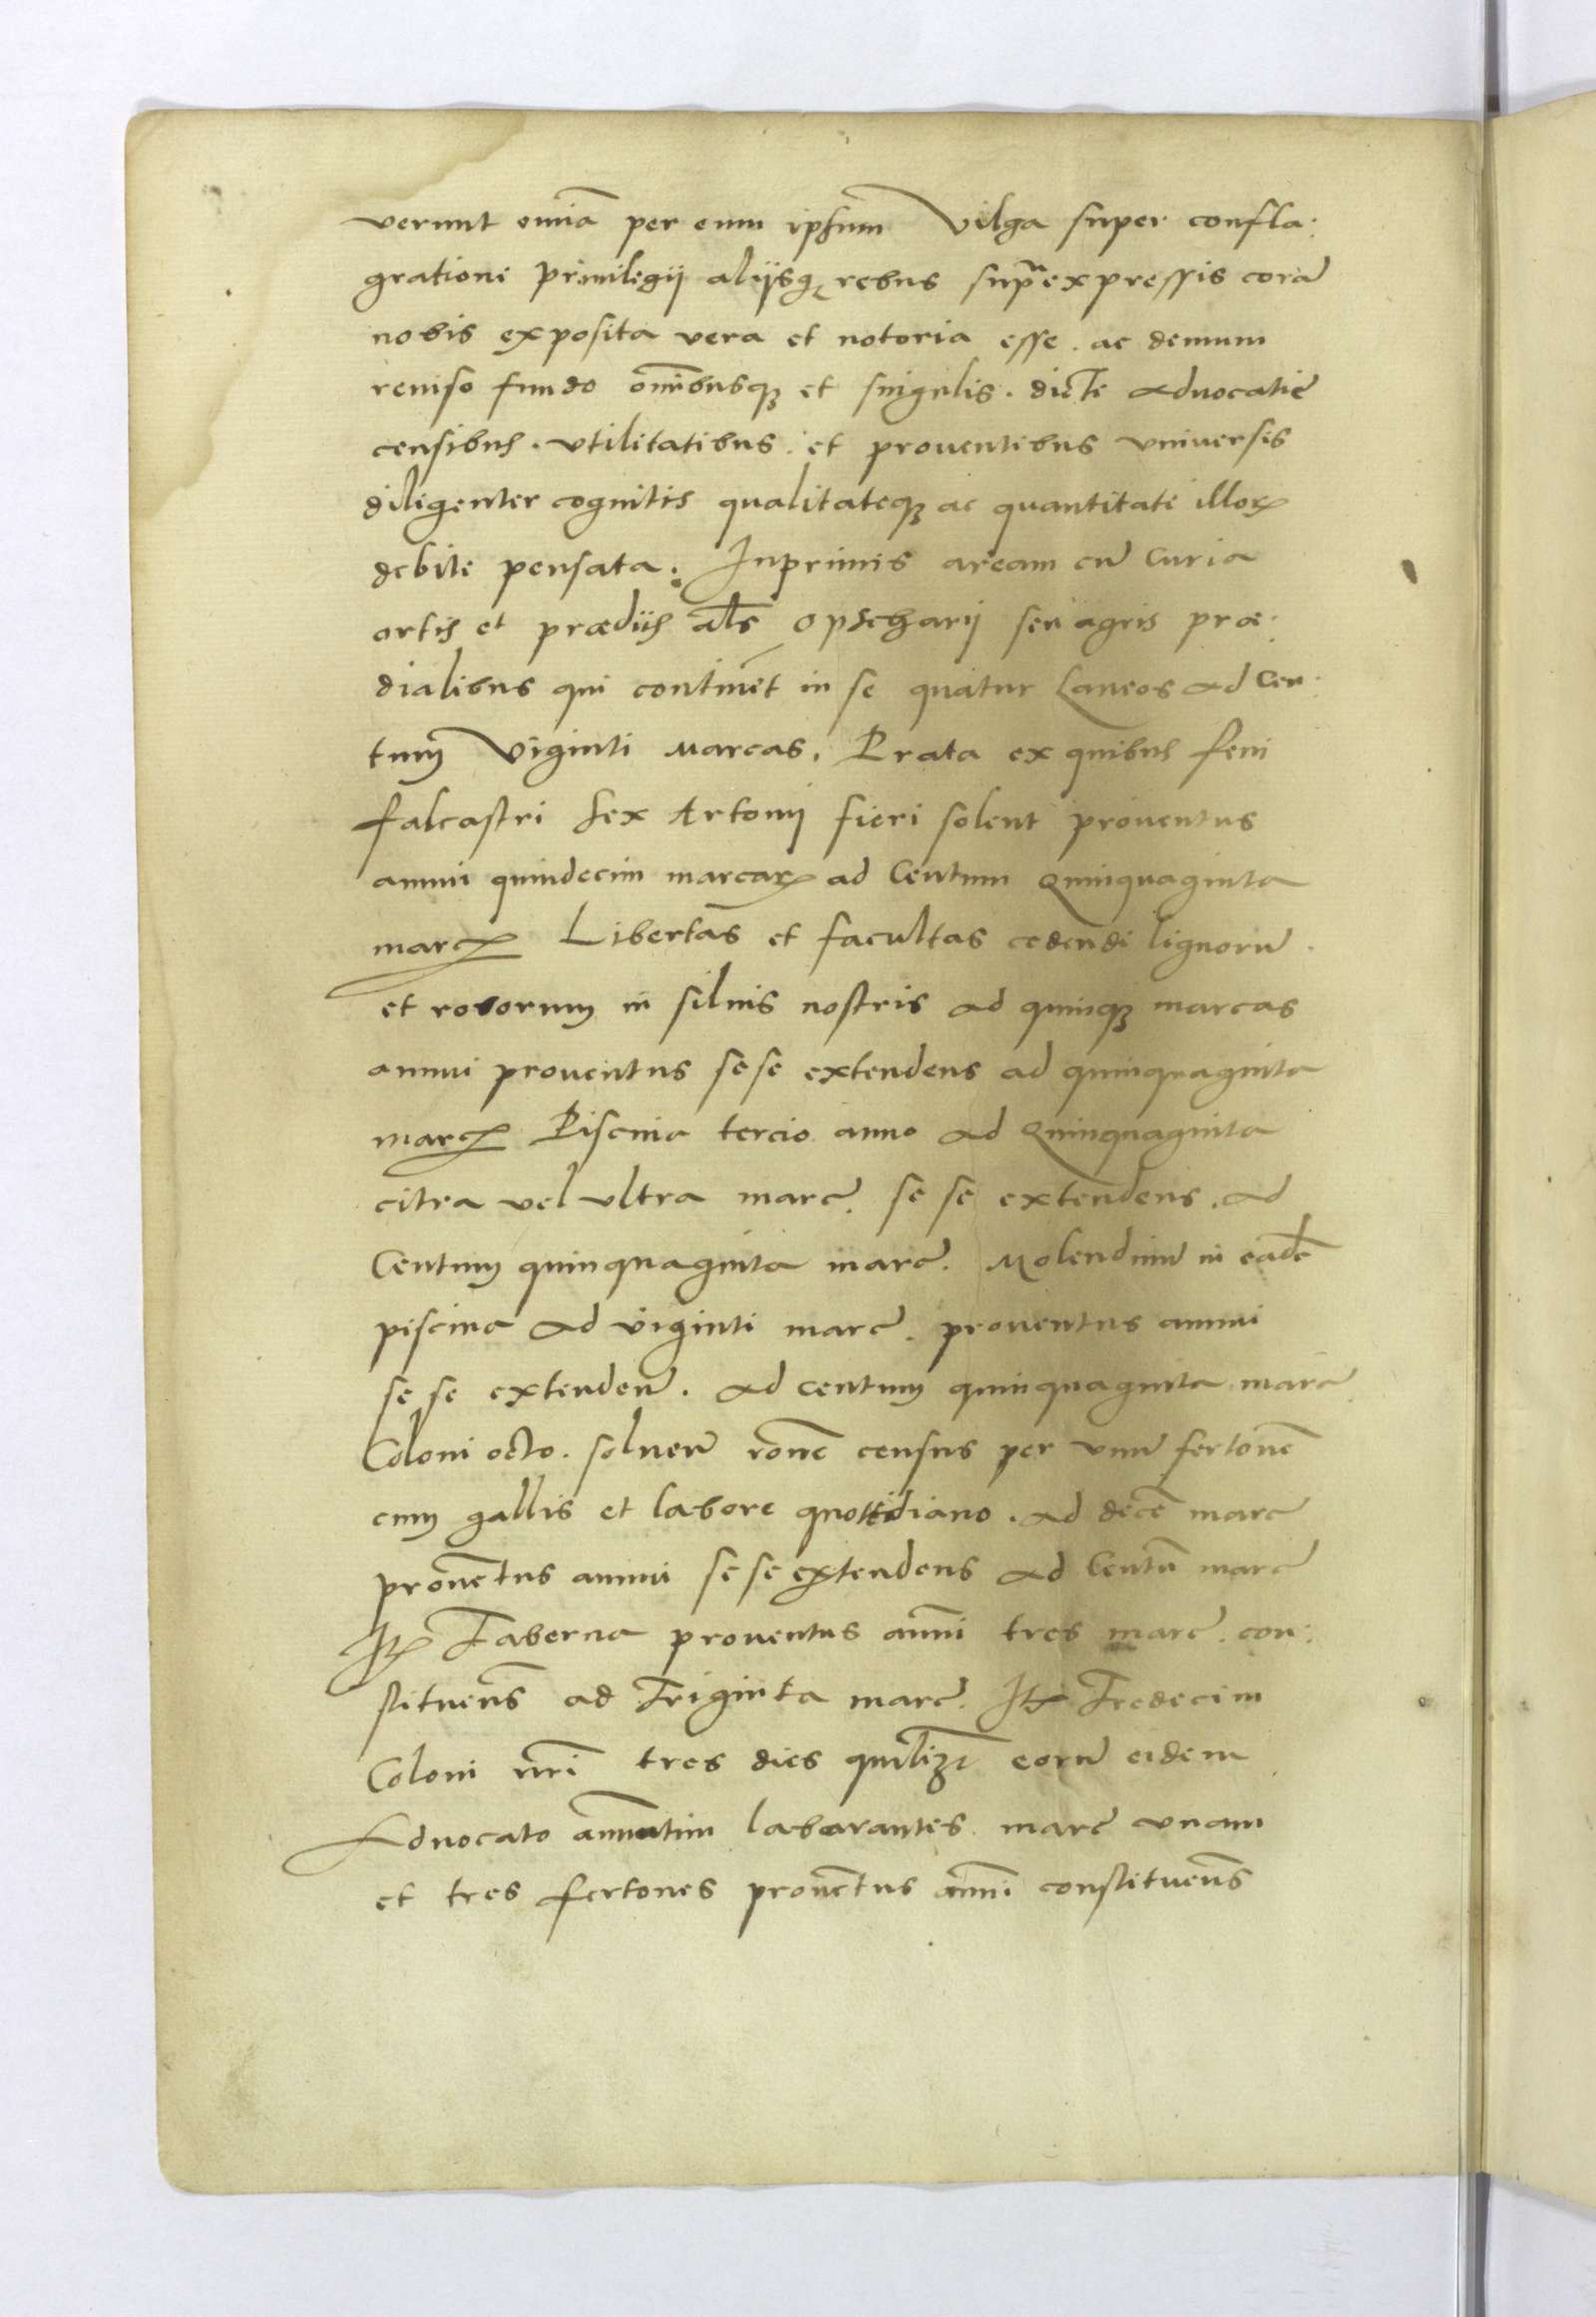 verunt omīa per eum ipsum Vilga super confla:
gratione Priuilegij alijsq₃ rebus supra expressis corā
nobis exposita vera et notoria esse. ac demum
reuiso fundo omībusq₃ et singulis. dicte aduocatie
censibus. vtilitatibus. et prouentibus vniuersis
diligenter cognitis qualitateq₃ ac quantitate illoꝝ
debite pensata: Inprimis aream cū Curia
ortis et prædiis als opscharij seu agris præ:
dialibus qui continēt in se quatur Laneos ad Cen:
tum Viginti Marcas. Prata ex quibus feni
falcastri sex Artonij fieri solent prouentus
annui quindecim marcaꝝ ad Centum Quinquaginta
marcꝝ Libertas et facultas cedendi lignorū
et roborum in siluis nostris ad quinq₃ marcas
annui prouentus sese extendens ad quinquaginta
marcꝝ Piscina tercio anno ad Quinquaginta
citra vel vltra marc. se se extendens. ad
Centum quinquaginta marc. Molendinū in eadē
piscina ad viginti marc. prouentus annui
se se extenden. ad centum quinquaginta marc
Coloni octo. soluen rōne census per vnū fertonē
cum gallis et labore quottidiano. ad decē marc
prouētus annui se se extendens ad Centū marc
Itꝫ Taberna prouentus anni tres marc. con:
stituens ad Triginta marc. Itꝫ Tredecim
Coloni nri tres dies quilibꝫ eorū eidem
Aduocato annuatim labarantes marc vnam
et tres fertones prouētus anni constituens